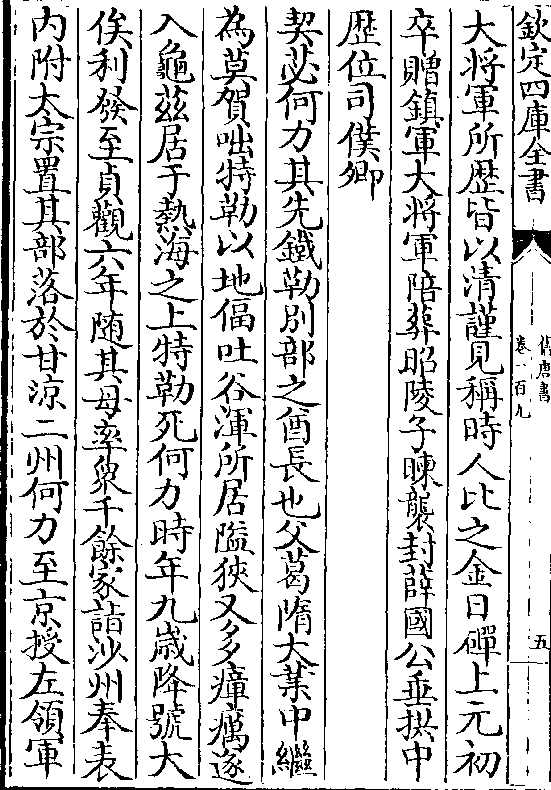 欽定四庫全書
舊唐書
卷一百九
五
大將軍所歴皆以清謹見稱時人比之金日磾上元初
卒贈鎮軍大將軍陪葬昭陵子暕襲封薛國公垂拱中
歴位司僕卿
契苾何力其先鐵勒別部之酋長也父葛隋大業中繼
為莫賀咄特勒以地偪吐谷渾所居隘狹又多瘴癘遂
入龜茲居于熱海之上特勒死何力時年九歳降號大
俟利發至貞觀六年随其母率衆千餘家詣沙州奉表
内附太宗置其部落於甘涼二州何力至京授左領軍